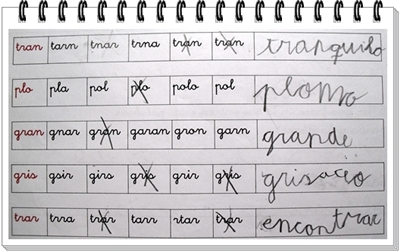 tran tarn tnar trna tran tran tranquilo
plo pla pol plo polo pol plomo
gran gnar gran garan gron garn grande
gris gsir girs gris grin gris grisaceo
trar trra trar tarr rtar trar encontrar